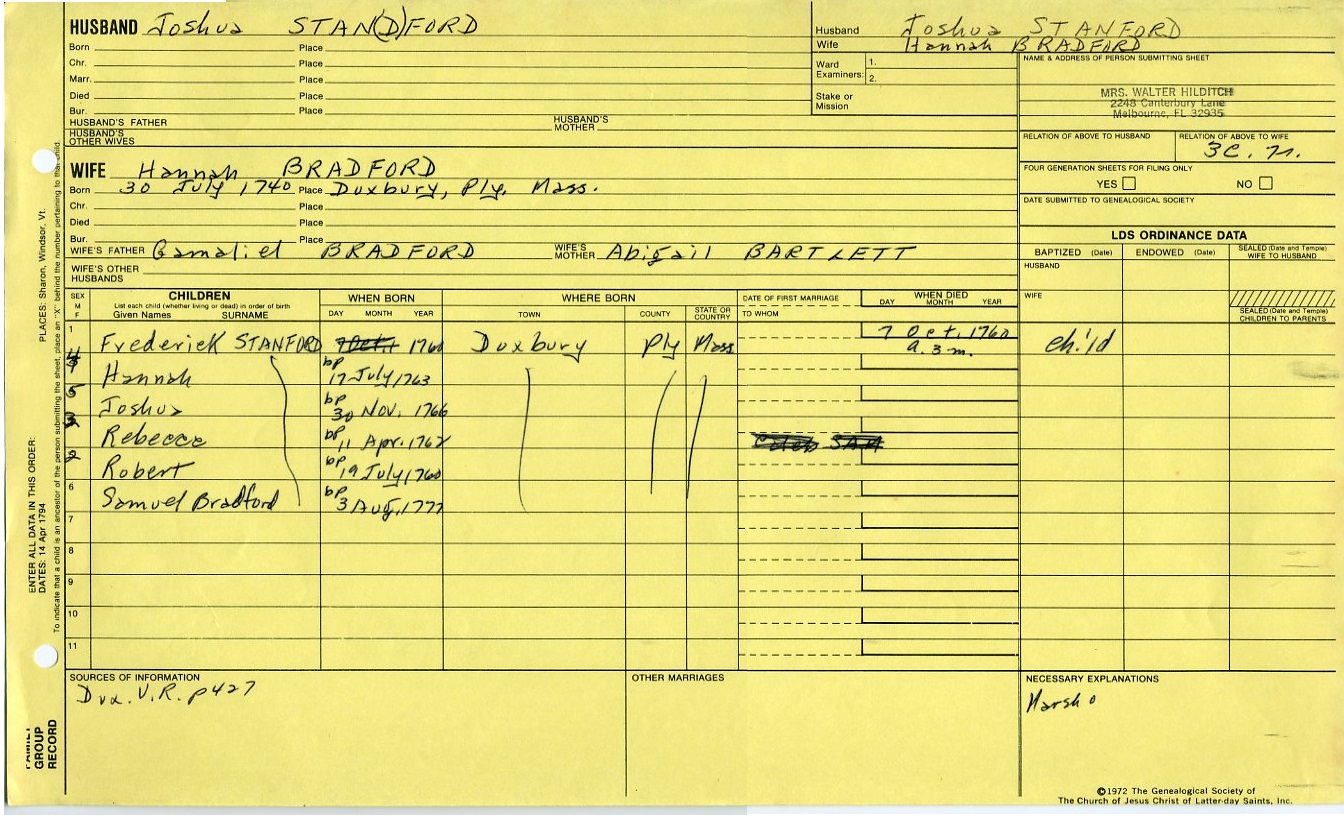 HUSBAND Joshua STAN(D)FORD
Born Place
Chr. Place
Marr. Place
Died Place
Bur. Place
HUSBAND'S FATHER HUSBAND'S MOTHER
HUSBAND'S OTHER WIVES
Husband Joshua STANFORD
Wife Hannah BRADFORD
Ward Examiners: 1.
2.
Stake or Mission
NAME & ADDRESS OF PERSON SUBMITTING SHEET
MRS. WALTER HILDITCH
2248 Canterbury Lane
Melbourne, FL 32935
RELATION OF ABOVE TO HUSBAND RELATION OF ABOVE TO WIFE
3C. 7r.
FOUR GENERATION SHEETS FOR FILING ONLY
YES NO
DATE SUBMITTED TO GENEALOGICAL SOCIETY
WIFE Hannah BRADFORD
Born 30 July 1740 Place Duxbury, Ply, Mass.
Chr. Place
Died Place
Bur. Place
WIFE'S FATHER Gamaliel BRADFORD WIFE'S MOTHER Abigail BARTLETT
WIFE'S OTHER HUSBANDS
LDS ORDINANCE DATA
BAPTIZED (Date) ENDOWED (Date) SEALED (Date and Temple) WIFE TO HUSBAND
HUSBAND
WIFE
SEALED (Date and Temple) CHILDREN TO PARENTS
SEX M F CHILDREN WHEN BORN WHERE BORN DATE OF FIRST MARRIAGE WHEN DIED
List each child (whether living or dead) in order of birth
Given Names SURNAME DAY MONTH YEAR TOWN COUNTY STATE OR COUNTRY TO WHOM DAY MONTH YEAR
1 Frederick STANFORD 7 Oct. 1760 Duxbury Ply Mass 7 Oct. 1760 a. 3 m. child
4 Hannah bp 17 July 1763
5 Joshua bp 30 Nov. 1766
3 Rebecca bp 11 Apr. 1762 Caleb SAM
2 Robert bp 19 July 1760
6 Samuel Bradford bp 3 Aug. 1777
7
8
9
10
11
SOURCES OF INFORMATION
Dux. V.R. p427
OTHER MARRIAGES
NECESSARY EXPLANATIONS
Marsh
©1972 The Genealogical Society of
The Church of Jesus Christ of Latter-day Saints, Inc.
FAMILY GROUP RECORD
ENTER ALL DATA IN THIS ORDER:
DATES: 14 Apr 1794
PLACES: Sharon, Windsor, Vt.
To indicate that a child is an ancestor of the person submitting the sheet, place an "X" behind the number pertaining to that child.